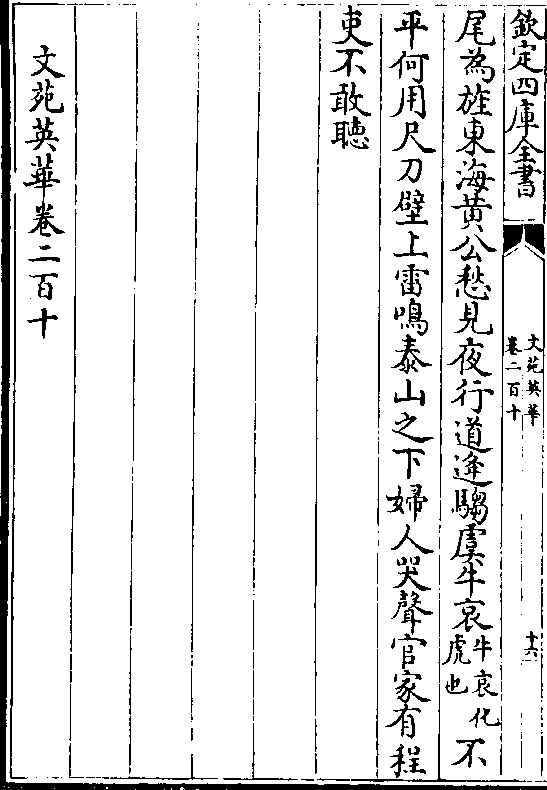 欽定四庫全書
文苑英華
卷二百十
十六
尾為旌東海黄公愁見夜行道逢騶虞牛哀牛哀化虎也不
平何用尺刀壁上雷鳴泰山之下婦人哭聲官家有程
吏不敢聽
文苑英華卷二百十